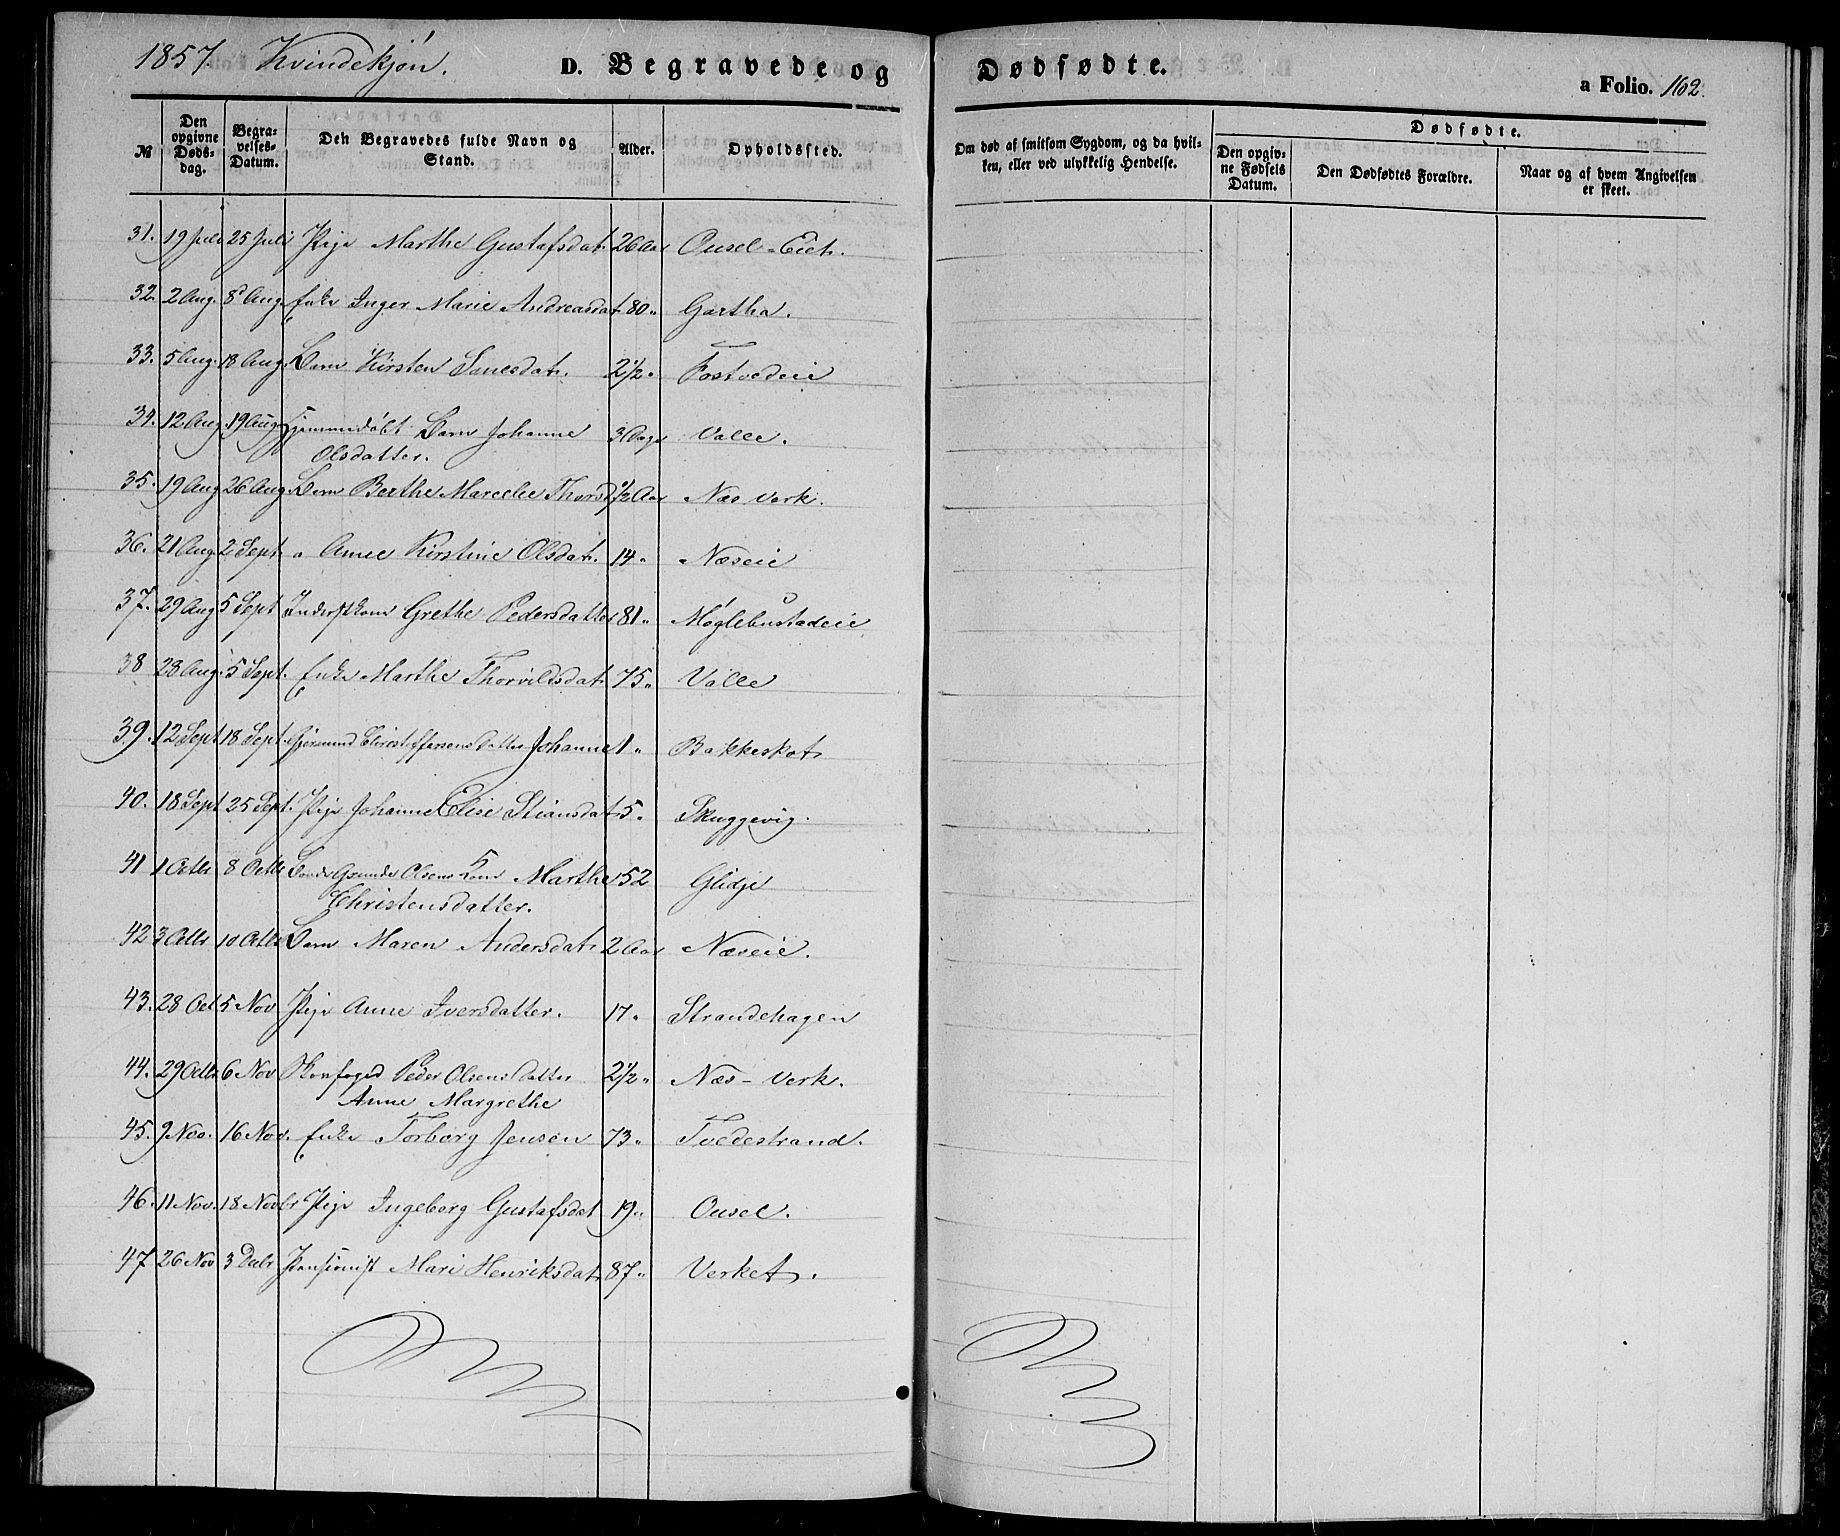 1857. Kvindekjøn. D. Begravede og Dødfødte. a Folio. 162.
№ Den opgivne Døds-dag. Begra-velses-Datum. Den Begravedes fulde Navn og Stand. Alder. Opholdssted. Om død af smitsom Sygdom, og da hvil-ken, eller ved ulykkelig Hendelse. Dødfødte. Den opgiv-ne Fødsels Datum. Den Dødfødtes Forældre. Naar og af hvem Angivelsen er skeet.
31. 19 Juli 25 Juli Pige Marthe Gustafsdat. 26 Aar Ousel-Eiet.
32. 2 Aug. 8 Aug. Enke Inger Marie Andreasdat 80 " Gartha.
33. 5 Aug. 18 Aug. Barn Kirsten 2½ " Fostvedeie
34. 12 Aug. 19 Aug. Hjemmedøbt Barn Johanne 3 Dage Valle.
Olsdatter.
35. 19 Aug 26 Aug. Barn Berthe Thorsd ½ Aar Næs Verk.
36. 21 Aug. 2 Sept. " Anne Kirstine Olsdat. 14 " Næseie
37. 29 Aug 5 Sept Inderstkone Grethe Pedersdatter 81 " Møglebustadeie
38 28 Aug. 5 Sept. Enke Marthe Thorvildsdat. 75 " Valle
39. 12 Sept 18 Sept. Gjermund Christoffersens Datter Johanne 1 " Bakkeskot
40. 18 Sept 25 Sept. Pige Johanne Elise Stiansdat. 5 " Skuggevig.
41 1 Octbr 8 Octbr Olsens Kone Marthe 52 Glidje
Christensdatter.
42 3 Octbr 10 Octbr Barn Maren Andersdat. 2 Aar Næseie.
43. 28 Oct 5 Nov Pige Anne Iversdatter. 17 " Strandehagen
44. 29 Octbr 6 Nov Skovfoged Peder Olsens Datter 2½ " Næs-Verk.
Anne Margrethe
45. 9 Nov. 16 Nov. Enke Torborg Jensen 73 " Tvedestrand.
46. 11 Nov. 18 Novbr Pige Ingeborg Gustafsdat 19 " Ousel.
47 26 Nov 3 Decbr Pensionist Mari Henriksdat. 87 " Verket.